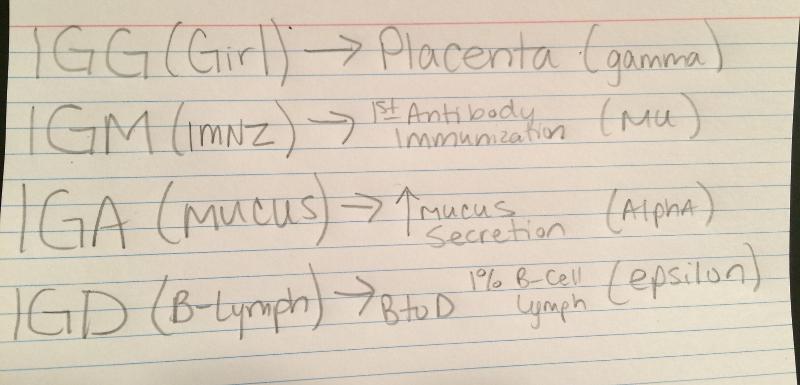 IGG (Girl) → Placenta (gamma)
IGM (IMNZ) → 1st Antibody Immunization (MU)
IGA (MUCUS) → ↑ MUCUS Secretion (AlphA)
IGD (B-Lymph) → B to D 1% B-Cell Lymph (epsilon)